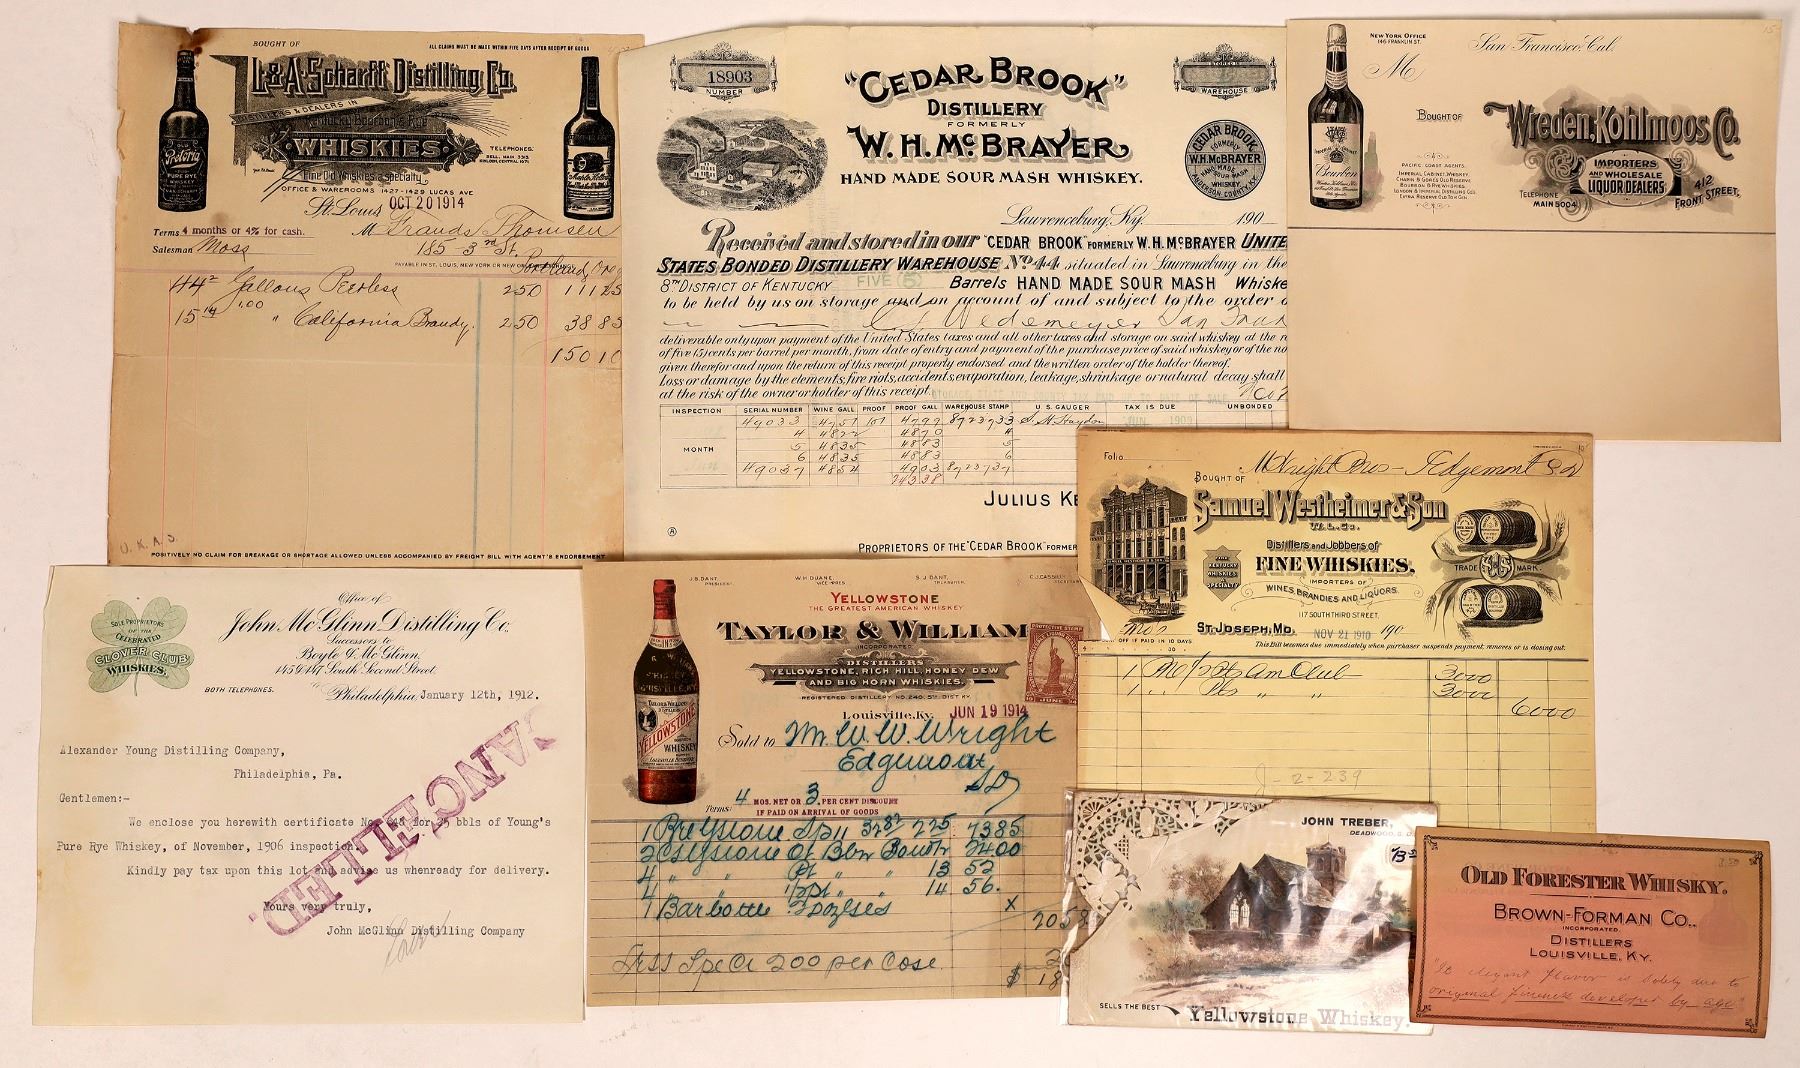 BOUGHT OF
ALL CLAIMS MUST BE MADE WITHIN FIVE DAYS AFTER RECEIPT OF GOODS
L & A. Scharff Distilling Co.
DISTILLERS & DEALERS IN
Kentucky Bourbon & Rye
WHISKIES
Fine Old Whiskies a specialty
TELEPHONES:
BELL, MAIN 3315
KINLOCH, CENTRAL 1071
OFFICE & WAREROOMS 1427-1429 LUCAS AVE
OLD
Pretoria
PURE RYE
WHISKEY
St. Louis OCT 20 1914
M Frauds Thomsen
Terms 4 months or 4% for cash.
185 3rd St.
Salesman Moss
PAYABLE IN ST. LOUIS, NEW YORK OR NEW
Portland Oreg
44 2 Gallons Peerless 2 50 111 25
1.00
15 " California Brandy. 2 50 38 85
150 10
U. K. A. S.
POSITIVELY NO CLAIM FOR BREAKAGE OR SHORTAGE ALLOWED UNLESS ACCOMPANIED BY FREIGHT BILL WITH AGENT'S ENDORSEMENT
18903
NUMBER
STORED IN
WAREHOUSE
"CEDAR BROOK"
DISTILLERY
FORMERLY
W. H. McBRAYER
HAND MADE SOUR MASH WHISKEY.
CEDAR BROOK
FORMERLY
W.H. McBRAYER
HAND MADE
SOUR MASH
WHISKEY
ANDERSON COUNTY, KY.
Lawrenceburg, Ky. 190
Received and stored in our "CEDAR BROOK" FORMERLY W. H. McBRAYER UNITE
STATES BONDED DISTILLERY WAREHOUSE No. 44 situated in Lawrenceburg in the
8TH DISTRICT OF KENTUCKY FIVE (5) Barrels HAND MADE SOUR MASH Whiske
to be held by us on storage and on account of and subject to the order o
Wedemeyer San Fran
deliverable only upon payment of the United States taxes and all other taxes and storage on said whiskey at the r
of five (5) cents per barrel per month, from date of entry and payment of the purchase price of said whiskey or of the no
given therefor and upon the return of this receipt properly endorsed and the written order of the holder thereof.
Loss or damage by the elements, fire riots, accidents, evaporation, leakage, shrinkage or natural decay shall
at the risk of the owner or holder of this receipt.
INSPECTION SERIAL NUMBER WINE GALL PROOF PROOF GALL WAREHOUSE STAMP U. S. GAUGER TAX IS DUE UNBONDED
49033 4751 101 4799 8723733 S. H. Haydon JUN 1909
4 4822 4870 4
MONTH 5 4835 4883 5
6 4835 4883 6
49037 4854 4903 8723737
24338
JULIUS KE
PROPRIETORS OF THE "CEDAR BROOK" FORMER
NEW YORK OFFICE
146 FRANKLIN ST.
San Francisco. Cal.
M
BOUGHT OF
Wreden, Kohlmoos Co.
IMPORTERS
AND WHOLESALE
LIQUOR DEALERS
412
FRONT STREET.
PACIFIC COAST AGENTS.
IMPERIAL CABINET WHISKEY
CHAPIN & GORE'S OLD RESERVE
BOURBON & RYE WHISKIES.
LONDON & IMPERIAL DISTILLING CO.
EXTRA RESERVE OLD TOM GIN.
TELEPHONE
MAIN 5004
Bourbon
Folio
M Wright Bros - Edgemont S D
BOUGHT OF
Samuel Westheimer & Son
W.L. Co.
Distillers and Jobbers of
FINE WHISKIES.
IMPORTERS OF
WINES, BRANDIES AND LIQUORS.
117 SOUTH THIRD STREET.
FINE
KENTUCKY
WHISKIES
A
SPECIALTY
TRADE MARK.
Mo
OFF IF PAID IN 10 DAYS
ST. JOSEPH, MO. NOV 21 1910 190
This Bill becomes due immediately when purchaser suspends payment, removes or is closing out.
1 Am Club 3000
1 " " " 3000
6000
J-2-239
SOLE PROPRIETORS
OF THE
CELEBRATED
CLOVER CLUB
WHISKIES.
Office of
John McGlinn Distilling Co.
Successors to
Boyle & McGlinn.
145 & 147 South Second Street.
BOTH TELEPHONES.
Philadelphia, January 12th, 1912.
Alexander Young Distilling Company,
Philadelphia, Pa.
Gentlemen:-
We enclose you herewith certificate No. for 25 bbls of Young's
Pure Rye Whiskey, of November, 1906 inspection.
Kindly pay tax upon this lot and advise us whenready for delivery.
Yours very truly,
John McGlinn Distilling Company
CANCELLED
J. B. DANT, PRESIDENT.
W. H. DUANE, VICE-PRES.
S. J. DANT, TREASURER.
C. J. CASSILLY
YELLOWSTONE
THE GREATEST AMERICAN WHISKEY
TAYLOR & WILLIAM
INCORPORATED
DISTILLERS
YELLOWSTONE, RICH HILL, HONEY DEW
AND BIG HORN WHISKIES.
REGISTERED DISTILLERY NO. 240, 5TH DIST. KY.
YELLOWSTONE
WHISKEY
Louisville, Ky. JUN 19 1914
Sold to Mr. W. W. Wright
Edgemont
S D
Terms: 4 MOS. NET OR 3 PER CENT DISCOUNT
IF PAID ON ARRIVAL OF GOODS
1 Br 225 73 85
2 24 00
4 " " Pt " " 13 52
4 " " 1/2 pt " " 14 56.
1 X
205 8
Less 200 per Case
$ 18
JOHN TREBER,
DEADWOOD, S. D.
SELLS THE BEST
Yellowstone Whiskey.
OLD FORESTER WHISKY.
BROWN-FORMAN CO.,
INCORPORATED.
DISTILLERS
LOUISVILLE, KY.
"It elegant flavor is solely due to
original fineness developed by age"